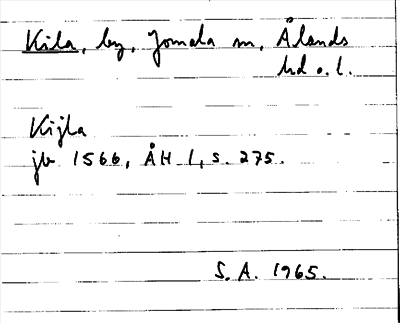 Kila, by, Jomala sn, Ålands
hd o. l.
Kijla
jb 1566, ÅH 1, s. 275.
S. A. 1965.